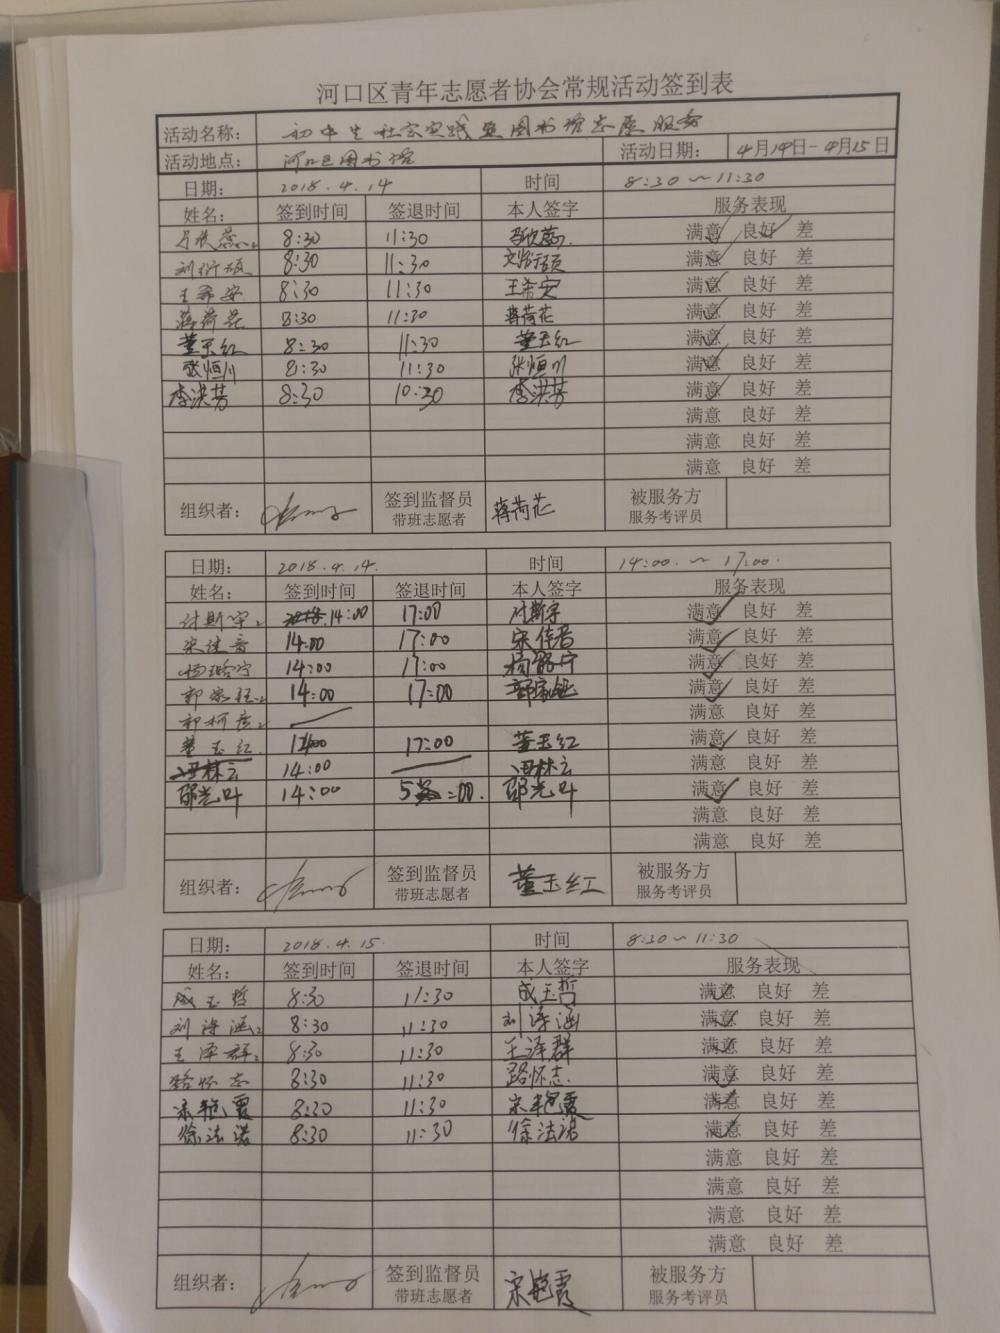 河口区青年志愿者协会常规活动签到表
活动名称： 初中生社会实践暨图书馆志愿服务
活动地点： 河口区图书馆 活动日期： 4月14日-4月15日
日期： 2018.4.14 时间 8:30～11:30
姓名： 签到时间 签退时间 本人签字 服务表现
8:30 11:30 满意 良好 差
8:30 11:30 满意 良好 差
王希安 8:30 11:30 王希安 满意 良好 差
蒋荷花 8:30 11:30 蒋荷花 满意 良好 差
董玉红 8:30 11:30 董玉红 满意 良好 差
张恒川 8:30 11:30 张恒川 满意 良好 差
李洪芳 8:30 10:30 李洪芳 满意 良好 差
满意 良好 差
满意 良好 差
满意 良好 差
组织者： 签到监督员 蒋荷花 被服务方
带班志愿者 服务考评员
日期： 2018.4.14. 时间 14:00.～17:00.
姓名： 签到时间 签退时间 本人签字 服务表现
14:00 17:00 满意 良好 差
宋佳音 14:00 17:00 宋佳音 满意 良好 差
14:00 17:00 满意 良好 差
14:00 17:00 满意 良好 差
满意 良好 差
董玉红 17:00 董玉红 满意 良好 差
14:00 满意 良好 差
邵光叶 14:00 5:00. 邵光叶 满意 良好 差
满意 良好 差
满意 良好 差
组织者： 签到监督员 董玉红 被服务方
带班志愿者 服务考评员
日期： 2018.4.15. 时间 8:30～11:30
姓名： 签到时间 签退时间 本人签字 服务表现
成玉哲 8:30 11:30 成玉哲 满意 良好 差
刘泽涵 8:30 11:30 刘泽涵 满意 良好 差
王泽群 8:30 11:30 王泽群 满意 良好 差
路怀志 8:30 11:30 路怀志. 满意 良好 差
宋艳霞 8:30 11:30 宋艳霞 满意 良好 差
徐法诺 8:30 11:30 徐法诺 满意 良好 差
满意 良好 差
满意 良好 差
满意 良好 差
满意 良好 差
组织者： 签到监督员 宋艳霞 被服务方
带班志愿者 服务考评员